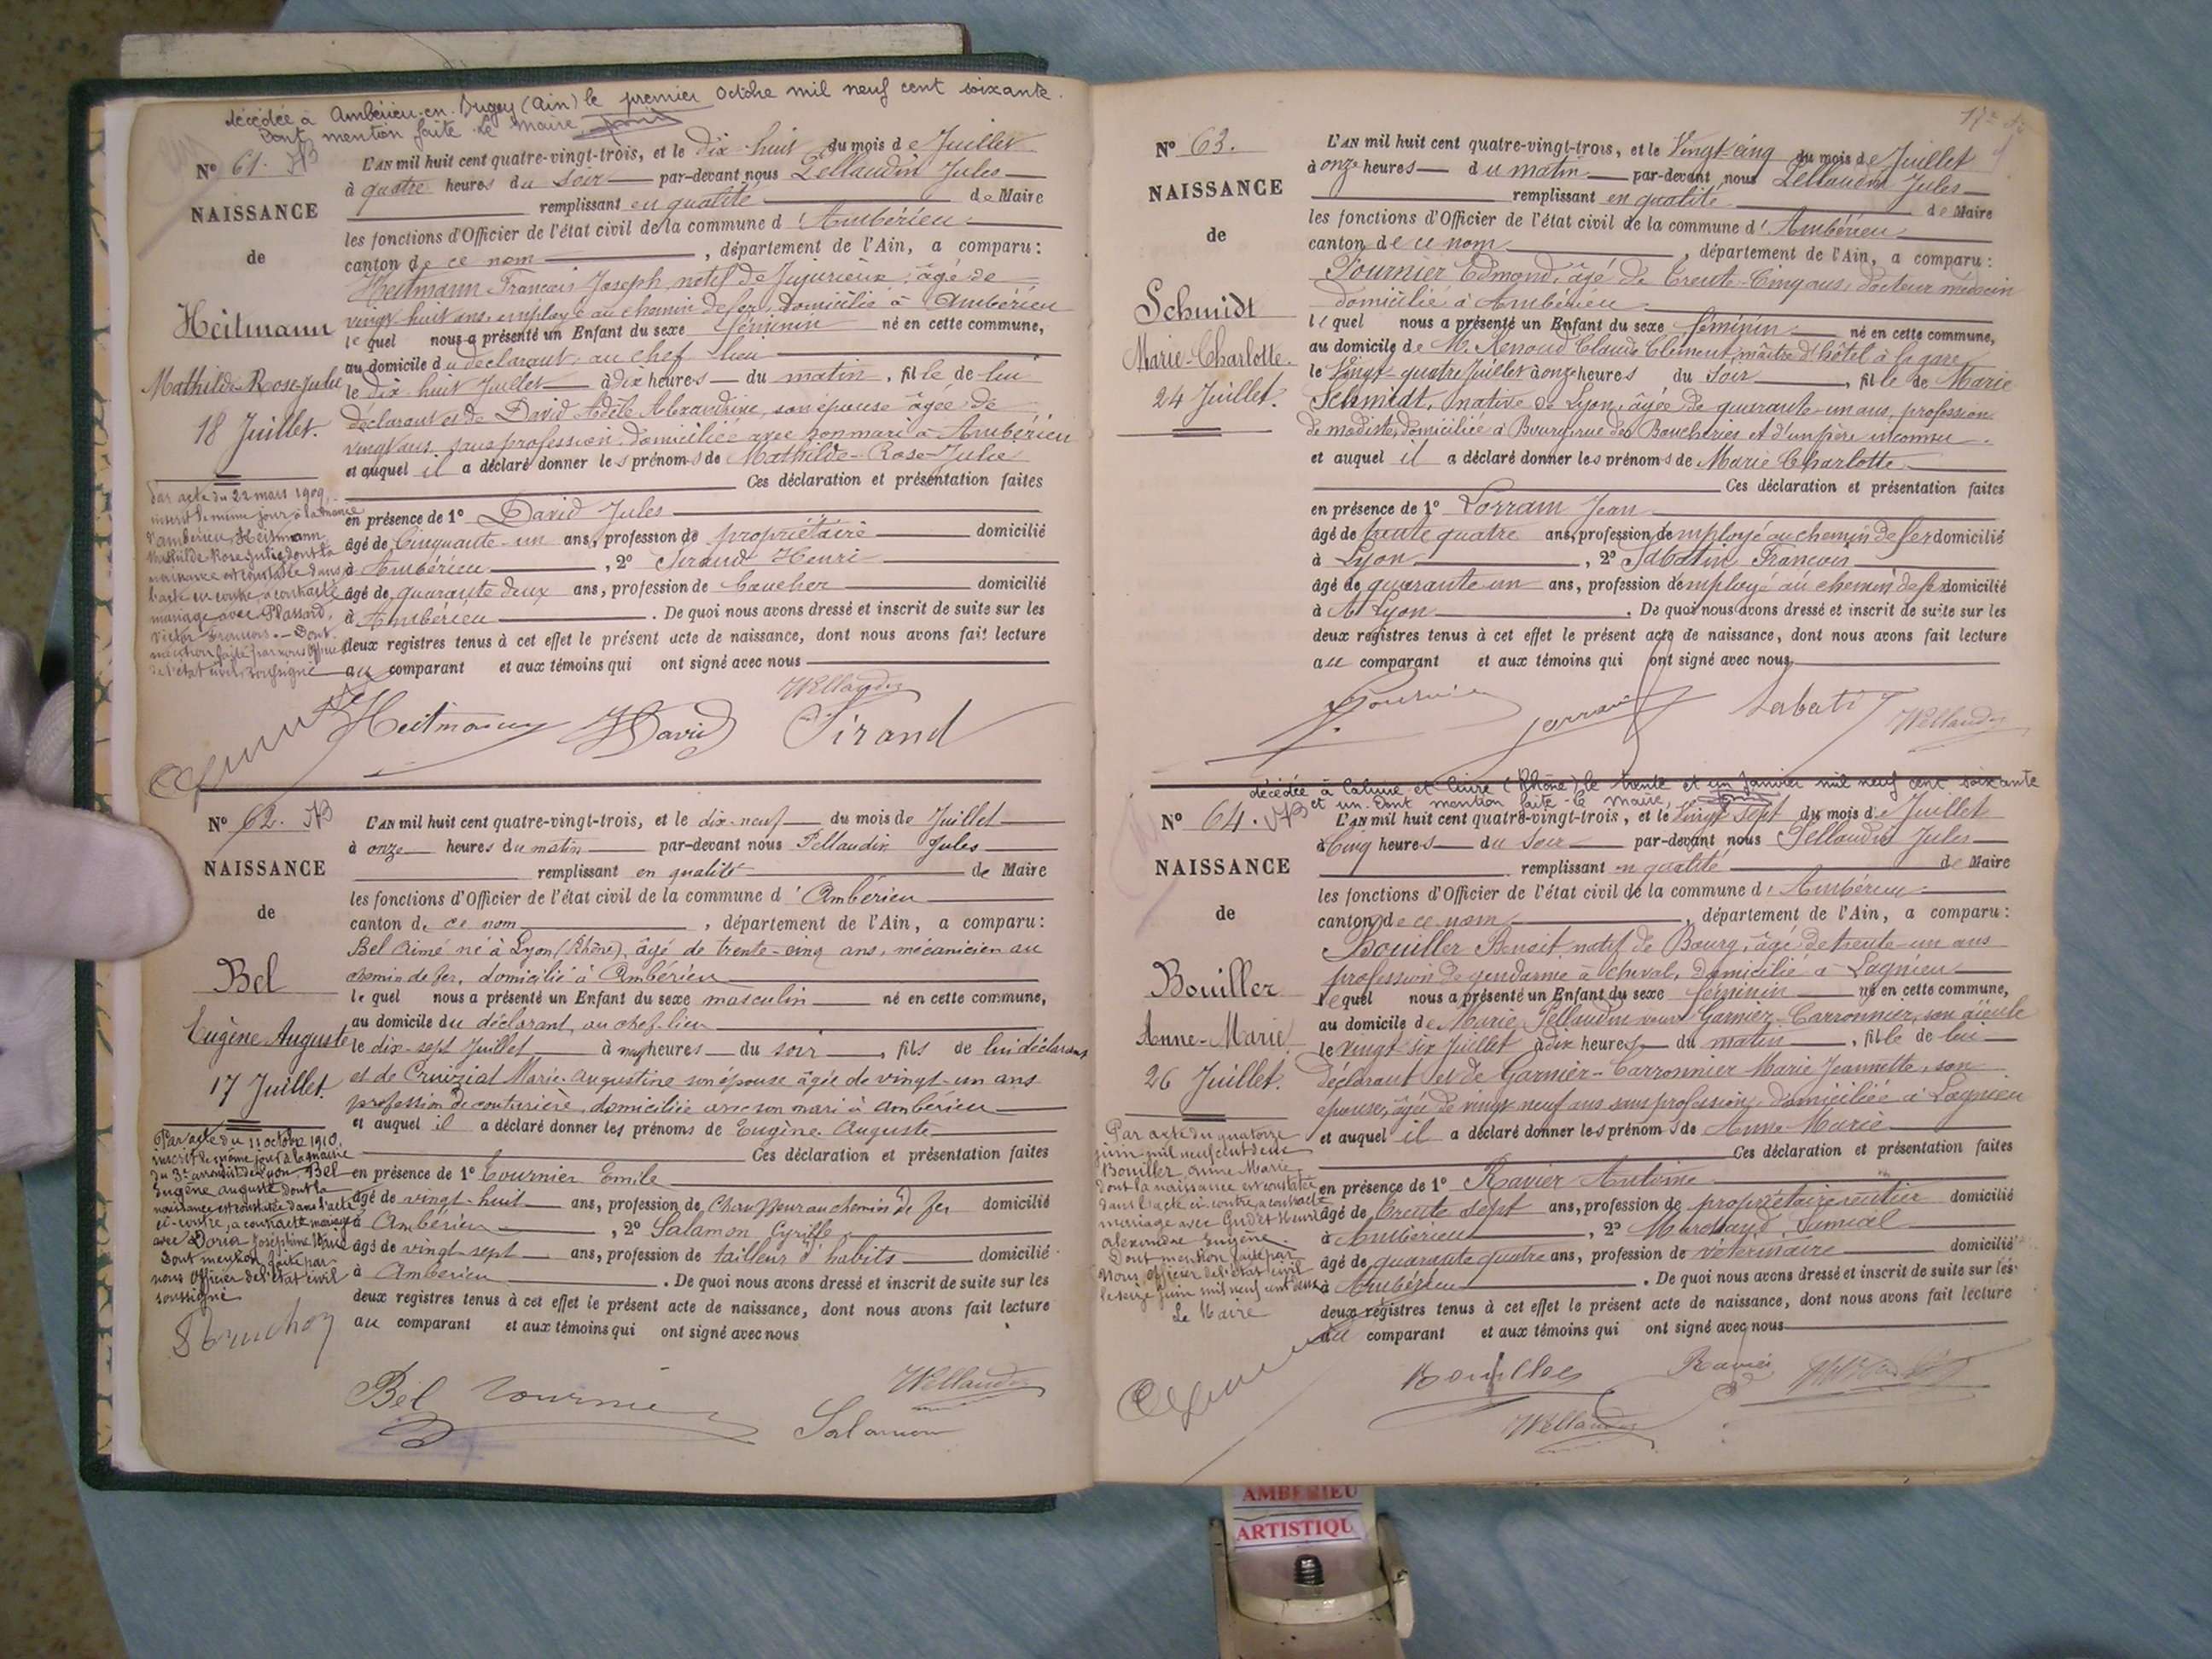 décédée à Ambérieu-en-Bugey (Ain) le premier Octobre mil neuf cent soixante.
Dont mention faite Le Maire
N° 61.
NAISSANCE
de
Heitmann
Mathilde-Rose-Julie
18 Juillet.
L'AN mil huit cent quatre-vingt-trois, et le dix huit du mois de Juillet
à quatre heures du Soir par-devant nous Pellaudin Jules
remplissant en qualité de Maire
les fonctions d'Officier de l'état civil de la commune d'Ambérieu
canton de ce nom, département de l'Ain, a comparu :
Heitmann François Joseph, natif de Jujurieux, âgé de
vingt huit ans, employé au chemin de fer, domicilié à Ambérieu
lequel nous a présenté un Enfant du sexe féminin né en cette commune,
au domicile du déclarant, au chef lieu
le dix huit Juillet à dix heures du matin, fille de lui
déclarant et de David Adèle Alexandrine, son épouse âgée de
vingt ans, sans profession, domiciliée avec son mari à Ambérieu
et auquel il a déclaré donner les prénoms de Mathilde-Rose-Julie
Ces déclaration et présentation faites
en présence de 1° David Jules
âgé de Cinquante-un ans, profession de propriétaire domicilié
à Ambérieu, 2° Sirand Henri
âgé de quarante deux ans, profession de domicilié
à Ambérieu. De quoi nous avons dressé et inscrit de suite sur les
deux registres tenus à cet effet le présent acte de naissance, dont nous avons fait lecture
au comparant et aux témoins qui ont signé avec nous
Par acte du 22 mars 1909,
inscrit le même jour à la mairie
d'Ambérieu, Heitmann
Mathilde-Rose-Julie dont la
naissance est constatée dans
l'acte ci-contre a contracté
mariage avec Plassard,
Victor François. - Dont
mention faite par nous Officier
de l'état civil soussigné
Heitmann David Sirand
N° 62.
NAISSANCE
de
Bel
Eugène Auguste
17 Juillet.
L'AN mil huit cent quatre-vingt-trois, et le dix-neuf du mois de Juillet
à onze heures du matin par-devant nous Pellaudin Jules
remplissant en qualité de Maire
les fonctions d'Officier de l'état civil de la commune d'Ambérieu
canton de ce nom, département de l'Ain, a comparu :
Bel Aimé né à Lyon (Rhône), âgé de trente-cinq ans, mécanicien au
chemin de fer, domicilié à Ambérieu
lequel nous a présenté un Enfant du sexe masculin né en cette commune,
au domicile du déclarant, au chef-lieu
le dix-sept Juillet à neuf heures du soir, fils de lui déclarant
et de Cruiziat Marie-Augustine son épouse âgée de vingt-un ans
profession de couturière, domiciliée avec son mari à Ambérieu
et auquel il a déclaré donner les prénoms de Eugène Auguste
Ces déclaration et présentation faites
en présence de 1° Tournier Emile
âgé de vingt-huit ans, profession de Chauffeur au chemin de fer domicilié
à Ambérieu, 2° Salamon Cyrille
âgé de vingt-sept ans, profession de tailleur d'habits domicilié
à Ambérieu. De quoi nous avons dressé et inscrit de suite sur les
deux registres tenus à cet effet le présent acte de naissance, dont nous avons fait lecture
au comparant et aux témoins qui ont signé avec nous
Par acte du 11 octobre 1910,
inscrit le même jour à la mairie
du 3e arrondt de Lyon, Bel
Eugène Auguste dont la
naissance est constatée dans l'acte
ci-contre, a contracté mariage
avec Doria Joséphine Marie
Dont mention faite par
nous Officier de l'état civil
soussigné
Bel Tournier Salamon
N° 63.
NAISSANCE
de
Schmidt
Marie-Charlotte.
24 Juillet.
L'AN mil huit cent quatre-vingt-trois, et le Vingt-cinq du mois de Juillet
à onze heures du matin par-devant nous Pellaudin Jules
remplissant en qualité de Maire
les fonctions d'Officier de l'état civil de la commune d'Ambérieu
canton de ce nom, département de l'Ain, a comparu :
Fournier Edmond, âgé de Trente-Cinq ans, docteur médecin
domicilié à Ambérieu
lequel nous a présenté un Enfant du sexe féminin né en cette commune,
au domicile de M. Renoud Claude Clément, maître d'hôtel à la gare
le Vingt-quatre Juillet à onze heures du Soir, fille de Marie
Schmidt, native de Lyon, âgée de quarante-un ans, profession
de modiste, domiciliée à Bourg, rue des Boucheries et d'un père inconnu
et auquel il a déclaré donner les prénoms de Marie Charlotte
Ces déclaration et présentation faites
en présence de 1° Lorrain Jean
âgé de trente quatre ans, profession d'employé au chemin de fer domicilié
à Lyon, 2° Sabatin François
âgé de quarante un ans, profession d'employé au chemin de fer domicilié
à Lyon. De quoi nous avons dressé et inscrit de suite sur les
deux registres tenus à cet effet le présent acte de naissance, dont nous avons fait lecture
au comparant et aux témoins qui ont signé avec nous
décédée à Caluire et Cuire (Rhône) le trente et un Janvier mil neuf cent soixante
et un. Dont mention faite - le maire,
N° 64.
NAISSANCE
de
Bouiller
Anne-Marie
26 Juillet.
L'AN mil huit cent quatre-vingt-trois, et le Vingt sept du mois de Juillet
à Cinq heures du Soir par-devant nous Pellaudin Jules
remplissant en qualité de Maire
les fonctions d'Officier de l'état civil de la commune d'Ambérieu
canton de ce nom, département de l'Ain, a comparu :
Bouiller Benoit, natif de Bourg, âgé de trente-un ans
profession de gendarme à cheval, domicilié à Lagnieu
lequel nous a présenté un Enfant du sexe féminin né en cette commune,
au domicile de Marie Pellaudin veuve Garnier-Carronnier, son aïeule
le vingt-six Juillet à dix heures du matin, fille de lui
déclarant et de Garnier-Carronnier Marie Jeannette, son
épouse, âgée de vingt neuf ans sans profession, domiciliée à Lagnieu
et auquel il a déclaré donner les prénoms de Anne-Marie
Ces déclaration et présentation faites
en présence de 1° Ravier Antoine
âgé de Trente sept ans, profession de propriétaire rentier domicilié
à Ambérieu, 2° Marchand
âgé de quarante quatre ans, profession de vétérinaire domicilié
à Ambérieu. De quoi nous avons dressé et inscrit de suite sur les
deux registres tenus à cet effet le présent acte de naissance, dont nous avons fait lecture
au comparant et aux témoins qui ont signé avec nous
Par acte du quatorze
juin mil neuf cent deux
Bouiller Anne Marie
dont la naissance est constatée
dans l'acte ci-contre, a contracté
mariage avec Henri
Alexandre Eugène.
Dont mention faite par
Nous Officier de l'état civil
le seize juin mil neuf cent deux
Le Maire
Bouiller Ravier
AMBERIEU
ARTISTIQU